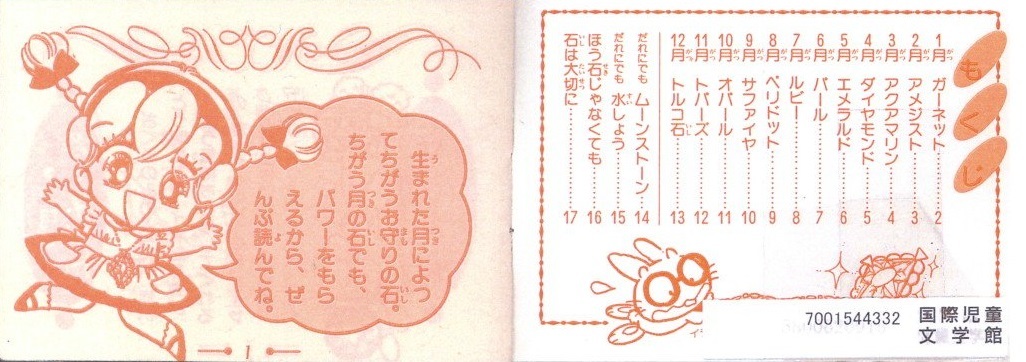 生まれた月によっ
てちがうお守りの石。
ちがう月の石でも、
パワーをもら
えるから、ぜ
んぶ読んでね。
1
もくじ
1月 ガーネット………2
2月 アメジスト………3
3月 アクアマリン………4
4月 ダイヤモンド………5
5月 エメラルド………6
6月 パール………7
7月 ルビー………8
8月 ペリドット………9
9月 サファイヤ………10
10月 オパール………11
11月 トパーズ………12
12月 トルコ石………13
だれにでも ムーンストーン 14
だれにでも 水しょう………15
ほう石じゃなくても………16
石は大切に………17
7001544332
国際児童
文学館